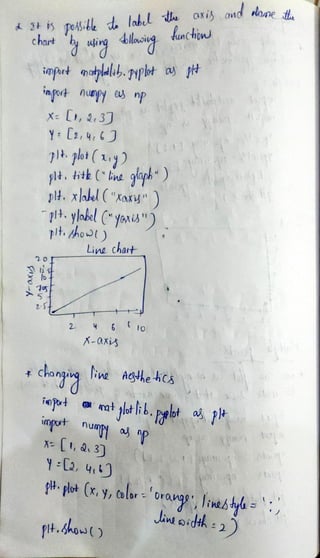 * It is possible to label the axis and name the
chart by using following function
import matplotlib.pyplot as plt
import numpy as np
x= [1, 2, 3]
y = [2, 4, 6]
plt. plot (x, y)
plt. title ("line glaph")
plt. xlabel ("xaxis")
plt. ylabel ("yaxis")
plt. show()
Line chart
Y-axis
20
2.5
2 4 6 8 10
X-axis
* changing line Aesthetics
import matplotlib. pyplot as plt
import numpy as np
x= [1, 2, 3]
y = [2, 4, 6]
plt. plot (x, y, color = 'orange', linestyle = ':',
linewidth = 2)
plt. show()